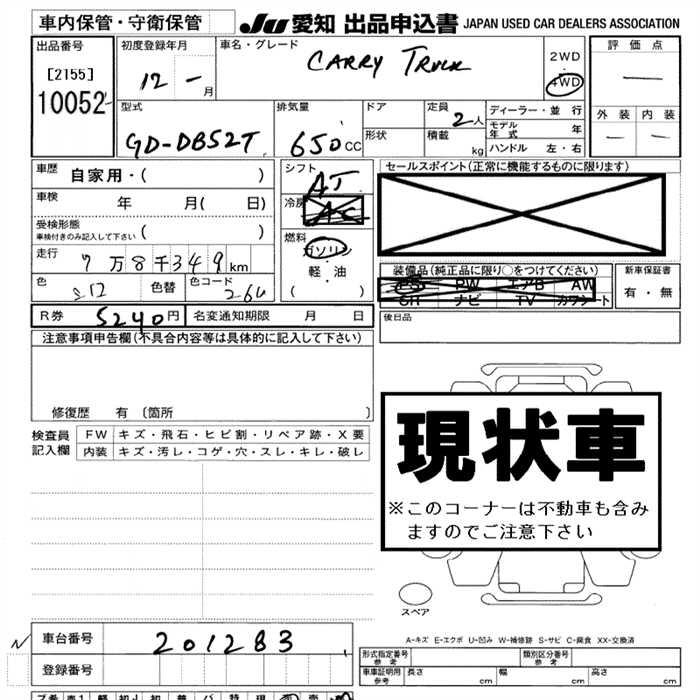 車内保管・守衛保管
JU 愛知 出品申込書 JAPAN USED CAR DEALERS ASSOCIATION
出品番号
[2155]
10052
初度登録年月
12 - 月
車名・グレード
CARRY TRUCK
2WD
・
4WD
評価点
—
外装 内装
— —
型式
GD-DB52T
排気量
650 CC
ドア
形状
定員
2人
積載
kg
ディーラー・並行
モデル年式 年
ハンドル 左・右
車歴
自家用・( )
車検
年 月( 日)
受検形態
車検付きのみ記入して下さい ( )
走行
7万8千349km
色
色替
色コード
26U
シフト
AT
冷房
AC
燃料
ガソリン
・
軽・油
( )
セールスポイント(正常に機能するものに限ります)
装備品(純正品に限り○をつけてください)
PS PW エアB AW
SR ナビ TV カワシート
新車保証書
有・無
R券 5240円 名変通知期限 月 日
後日品
注意事項申告欄(不具合内容等は具体的に記入して下さい)
修復歴 有〔箇所 〕
検査員
記入欄
FW キズ・飛石・ヒビ割・リペア跡・X要
内装 キズ・汚レ・コゲ・穴・スレ・キレ・破レ
現状車
※このコーナーは不動車も含み
ますのでご注意下さい
スペア
A-キズ E-エクボ U-凹み W-補修跡 S-サビ C-腐食 XX-交換済
N
車台番号 201283
登録番号
形式指定番号
参考
類別区分番号
参考
車庫証明用
参考
長さ cm 幅 cm 高さ cm